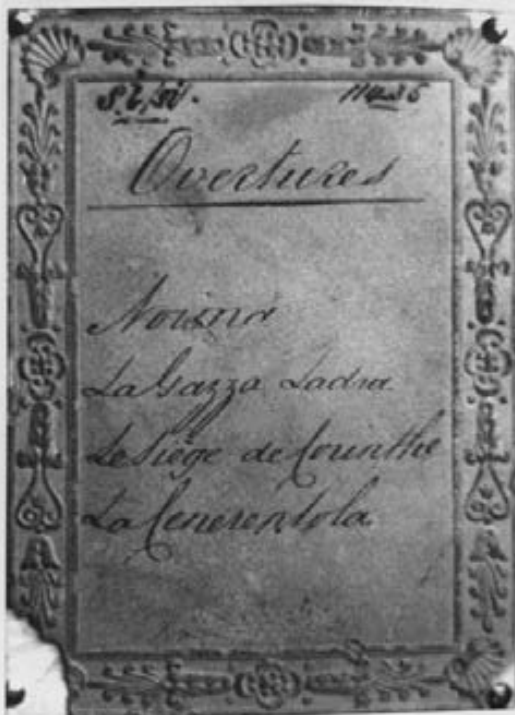 Overtures
Norma
La Gazza Ladra
Le Siége de Corinthe
La Cenerentola